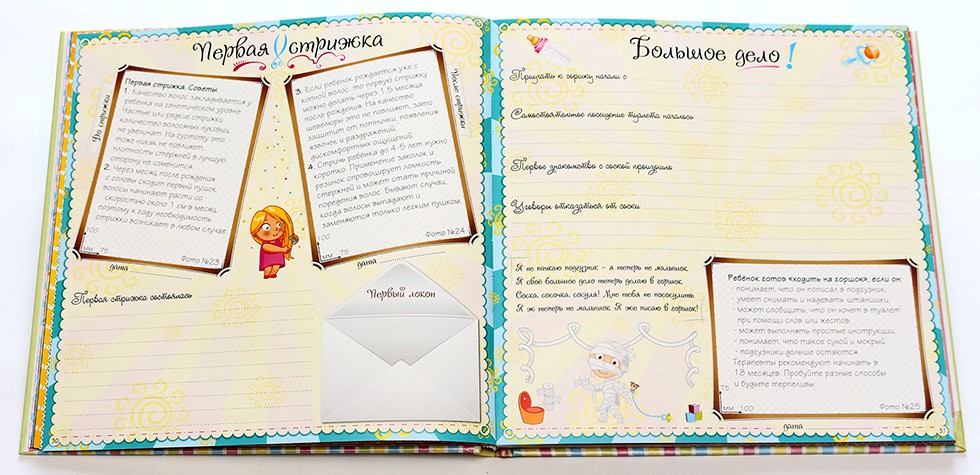 Первая стрижка
До стрижки
Первая стрижка. Советы.
1. Качество волос закладывается у
ребенка на генетическом уровне.
Частые или редкие стрижки
количество волосяных луковиц
не увеличат. На густоту это
тоже никак не повлияет,
плотность стержней в лучшую
сторону не изменится.
2. Через месяц после рождения
с головы сходит первый пушок,
волосы начинают расти со
скоростью около 1 см в месяц,
поэтому к году необходимость
стрижки возникает в любом случае.
100
мм 75
Фото №23
дата
После стрижки
3. Если ребенок рождается уже с
копной волос, то первую стрижку
можно делать через 1-1,5 месяца
после рождения. На качество
шевелюры это не повлияет, зато
защитит от потнички, появления
язвочек и раздражений,
дискомфортных ощущений.
4. Стричь ребенка до 4-5 лет нужно
коротко. Применение заколок и
резинок спровоцирует ломкость
стержней и может стать причиной
выпадения. Бывают случаи,
когда волосы выпадают и
заменяются только легким пушком.
100
мм 75
Фото №24
дата
Первая стрижка состоялась
Первый локон
30
Большое дело!
Приучать к горшку начали с
Самостоятельное посещение туалета началось
Первое знакомство с соской произошло
Уговоры отказаться от соски
Я не пачкаю подгузник - я теперь не малышок.
Я своё большое дело теперь делаю в горшок.
Соска, сосочка, сосуля! Мне тебя не пососулить.
Я ж теперь не малышок. Я же писаю в горшок!
Ребёнок готов «ходить на горшок», если он:
- понимает, что он пописал в подгузник,
- умеет снимать и надевать штанишки,
- может сообщить, что он хочет в туалет
при помощи слов или жестов,
- может выполнять простые инструкции,
- понимает, что такое сухой и мокрый
- подгузники дольше остаются
Терапевты рекомендуют начинать в
18 месяцев. Пробуйте разные способы
и будьте терпеливы.
75
мм 100
Фото №25
дата
31